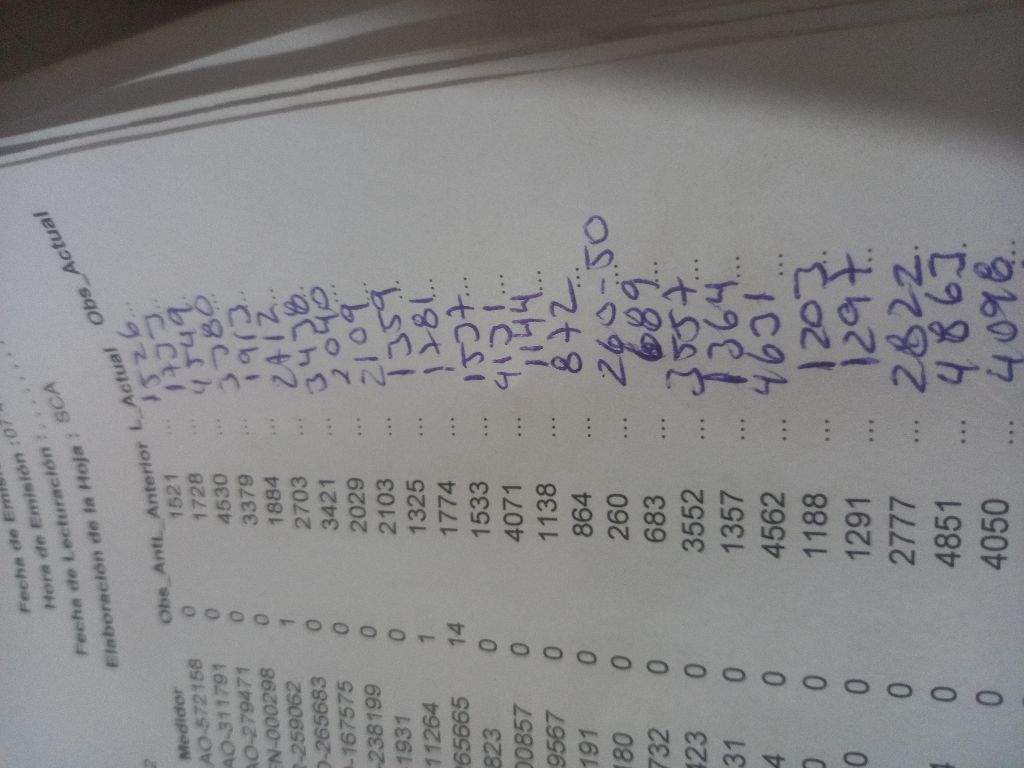 Fecha de Emisión :07
Hora de Emisión :
Fecha de Lecturación :
Elaboración de la Hoja : SCA
Medidor Obs_Ant L_Anterior L_Actual Obs_Actual
AO-572158 0 1521 ... 1526 ...
AO-311791 0 1728 ... 1733 ...
AO-279471 0 4530 ... 4549 ...
EN-000298 0 3379 ... 3380 ...
-259062 1 1884 ... 1913 ...
-265683 0 2703 ... 2712 ...
-167575 0 3421 ... 3438 ...
-238199 0 2029 ... 2040 ...
1931 0 2103 ... 2109 ...
11264 1 1325 ... 1359 ...
65665 14 1774 ... 1781 ...
823 0 1533 ... 1537 ...
00857 0 4071 ... 4131 ...
9567 0 1138 ... 1144 ...
191 0 864 ... 872 ...
180 0 260 ... 260-50 ...
732 0 683 ... 689 ...
423 0 3552 ... 3557 ...
31 0 1357 ... 1364 ...
4 0 4562 ... 4631 ...
0 0 1188 ... 1203 ...
0 0 1291 ... 1297 ...
0 2777 ... 2822 ...
4 0 4851 ... 4863 ...
0 4050 ... 4098 ...